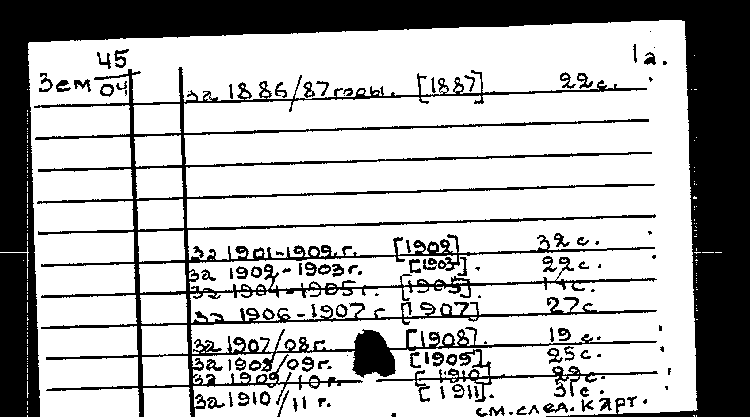 45 1а.
Зем 04
за 1886/87 годы. [1887] 22 с.
за 1901-1902 г. [1902] 32 с.
за 1902-1903 г. [1903]. 22 с.
за 1904-1905 г. [1905]. 14 с.
за 1906-1907 г [1907] 27 с
за 1907/08 г. [1908]. 19 с.
за 1908/09 г. [1909]. 25 с.
за 1909/10 г. [1910] с.
за 1910/11 г. [1911]. 31 с.
см. след. карт.